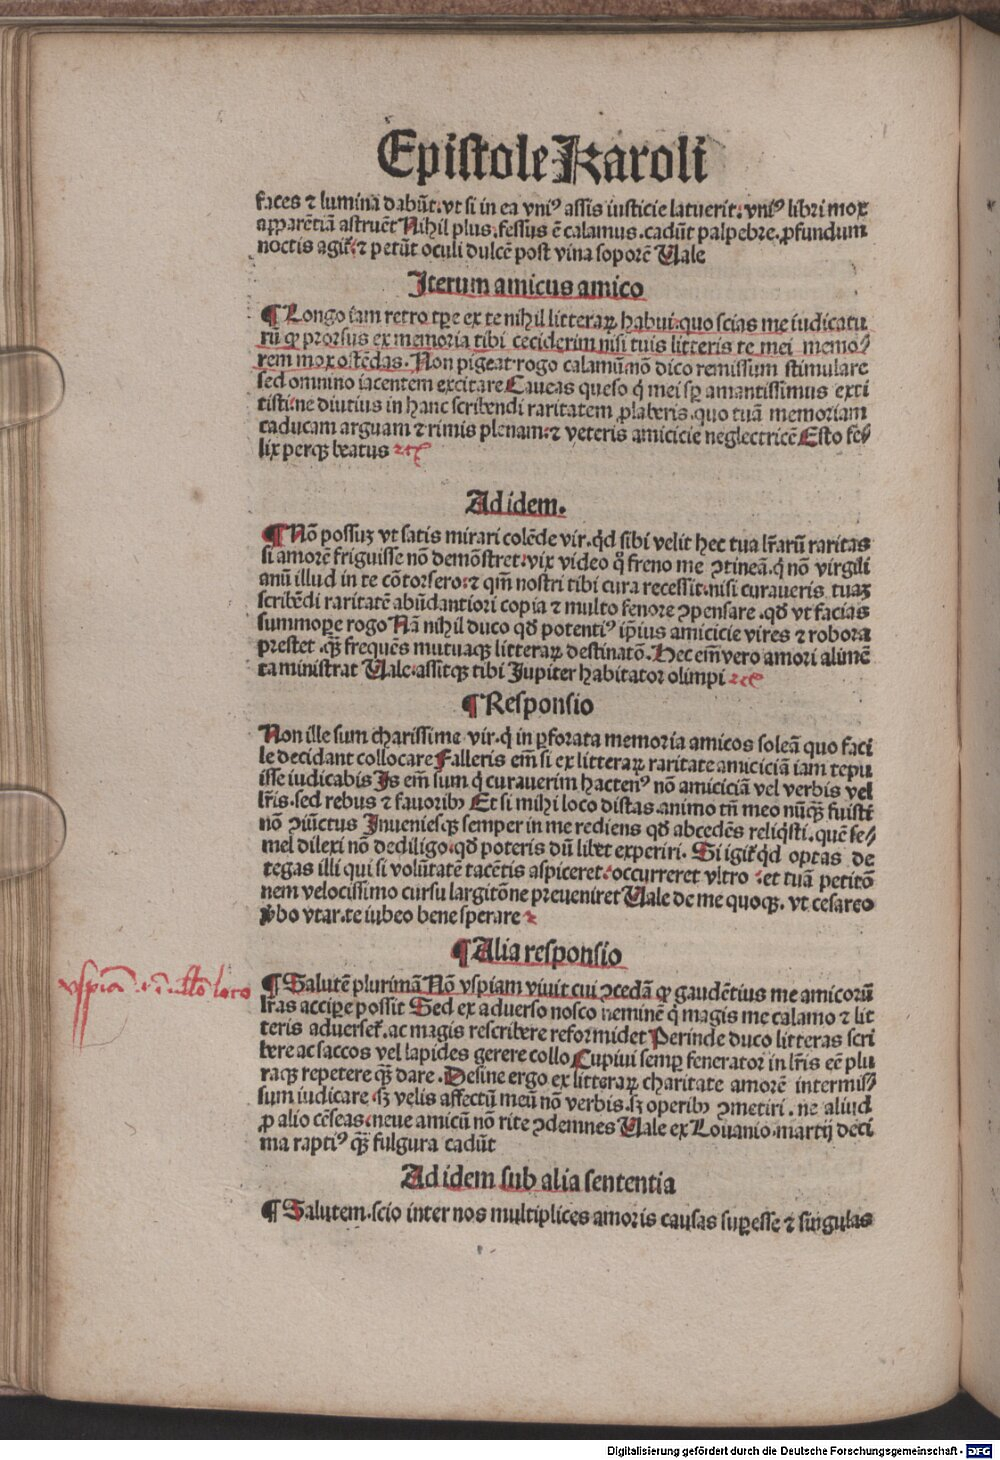 Epistole Karoli
faces ⁊ lumina dabūt. vt si in ea vniꝰ assis iusticie latuerit: vniꝰ libri mox
apparētiā astruēt Nihil plus. fessus ē calamus. cadūt palpebre. ꝓfundum
noctis agit̃. ⁊ petūt oculi dulcē post vina soporē Vale
Iterum amicus amico
¶ Longo iam retro tꝑe ex te nihil litteraꝝ habui. quo scias me iudicatu
rū ꝙ prorsus ex memoria tibi ceciderim nisi tuis litteris te mei memo⸗
rem mox ostēdas. Non pigeat rogo calamū nō dico remissium stimulare
sed omnino iacentem excitare Caueas queso q̇ mei sꝑ amantissimus exti
tisti. ne diutius in hanc scribendi raritatem ꝓlaberis. quo tuā memoriam
caducam arguam ⁊ rimis plenam: ⁊ veteris amicicie neglectricē Esto fe⸗
lix perqꝫ beatus ⁊cͭ
Ad idem.
¶ Nō possuꝫ vt satis mirari colēde vir. q̇d sibi velit hec tua lr̄arū raritas
si amorē friguisse nō demōstret. vix video q̊ freno me ꝯtineā. q̇ nō virgili
anū illud in te cōtorsero: ⁊ qm̄ nostri tibi cura recessit. nisi curaueris tuaꝫ
scribēdi raritatē abūdantiori copia ⁊ multo fenore ꝯpensare. qđ vt facias
summoꝑe rogo Nā nihil duco qđ potentiꝰ ip̄ius amicicie vires ⁊ robora
prestet. qꝫ̄ frequēs mutuaqꝫ litteraꝝ destinatō. Hec em̄vero amori alimē
ta ministrat Vale. assitqꝫ tibi Jupiter habitator olimpi ⁊cͭ
¶ Responsio
Non ille sum charissime vir. q̇ in ꝑforata memoria amicos soleā quo faci
le decidant collocare Falleris em̄ si ex litteraꝝ raritate amiciciā iam tepu
isse iudicabis Is em̄ sum q̇ curauerim hactenꝰ nō amiciciā vel verbis vel
lr̄is. sed rebus ⁊ fauoribꝫ Et si mihi loco distas. animo tn̄ meo nūqꝫ̄ fuisti
nō ꝯiūctus Inueniesqꝫ semper in me rediens qđ abcedēs reliq̇sti. quē se⸗
mel dilexi nō dediligo. qđ poteris dū libet experiri. Si igit̃ q̇d optas de
tegas illi qui si volūtatē tacētis aspiceret: occurreret vltro: et tuā petitō
nem velocissimo cursu largitōne preueniret Vale de me quoqꝫ. vt cesareo
v̓bo vtar. te iubeo bene sperare ⁊
¶ Alia responsio
vspiā .i. ī nullo loco
¶ Salutē plurimā Nō vspiam viuit cui ꝯcedā ꝙ gaudētius me amicorū
lr̄as acciꝑe possit Sed ex aduerso nosco neminē q̇ magis me calamo ⁊ lit
teris aduerset̃. ac magis rescribere reformidet Perinde duco litteras scri
bere ac saccos vel lapides gerere collo Cupiui semꝑ fenerator in lr̄is eē plu
raqꝫ repetere qꝫ̄ dare. Desine ergo ex litteraꝝ charitate amorē intermis⸗
sum iudicare. sꝫ velis affectū meū nō verbis. sꝫ operibꝫ ꝯmetiri. ne aliud
ꝓ alio cēseas. neue amicū nō rite ꝯdemnes Vale ex Louanio. martij deci
ma raptiꝰ qꝫ̄ fulgura cadūt
Ad idem sub alia sententia
¶ Salutem. scio inter nos multiplices amoris causas suꝑesse ⁊ singulas
Digitalisierung gefördert durch die Deutsche Forschungsgemeinschaft - DFG